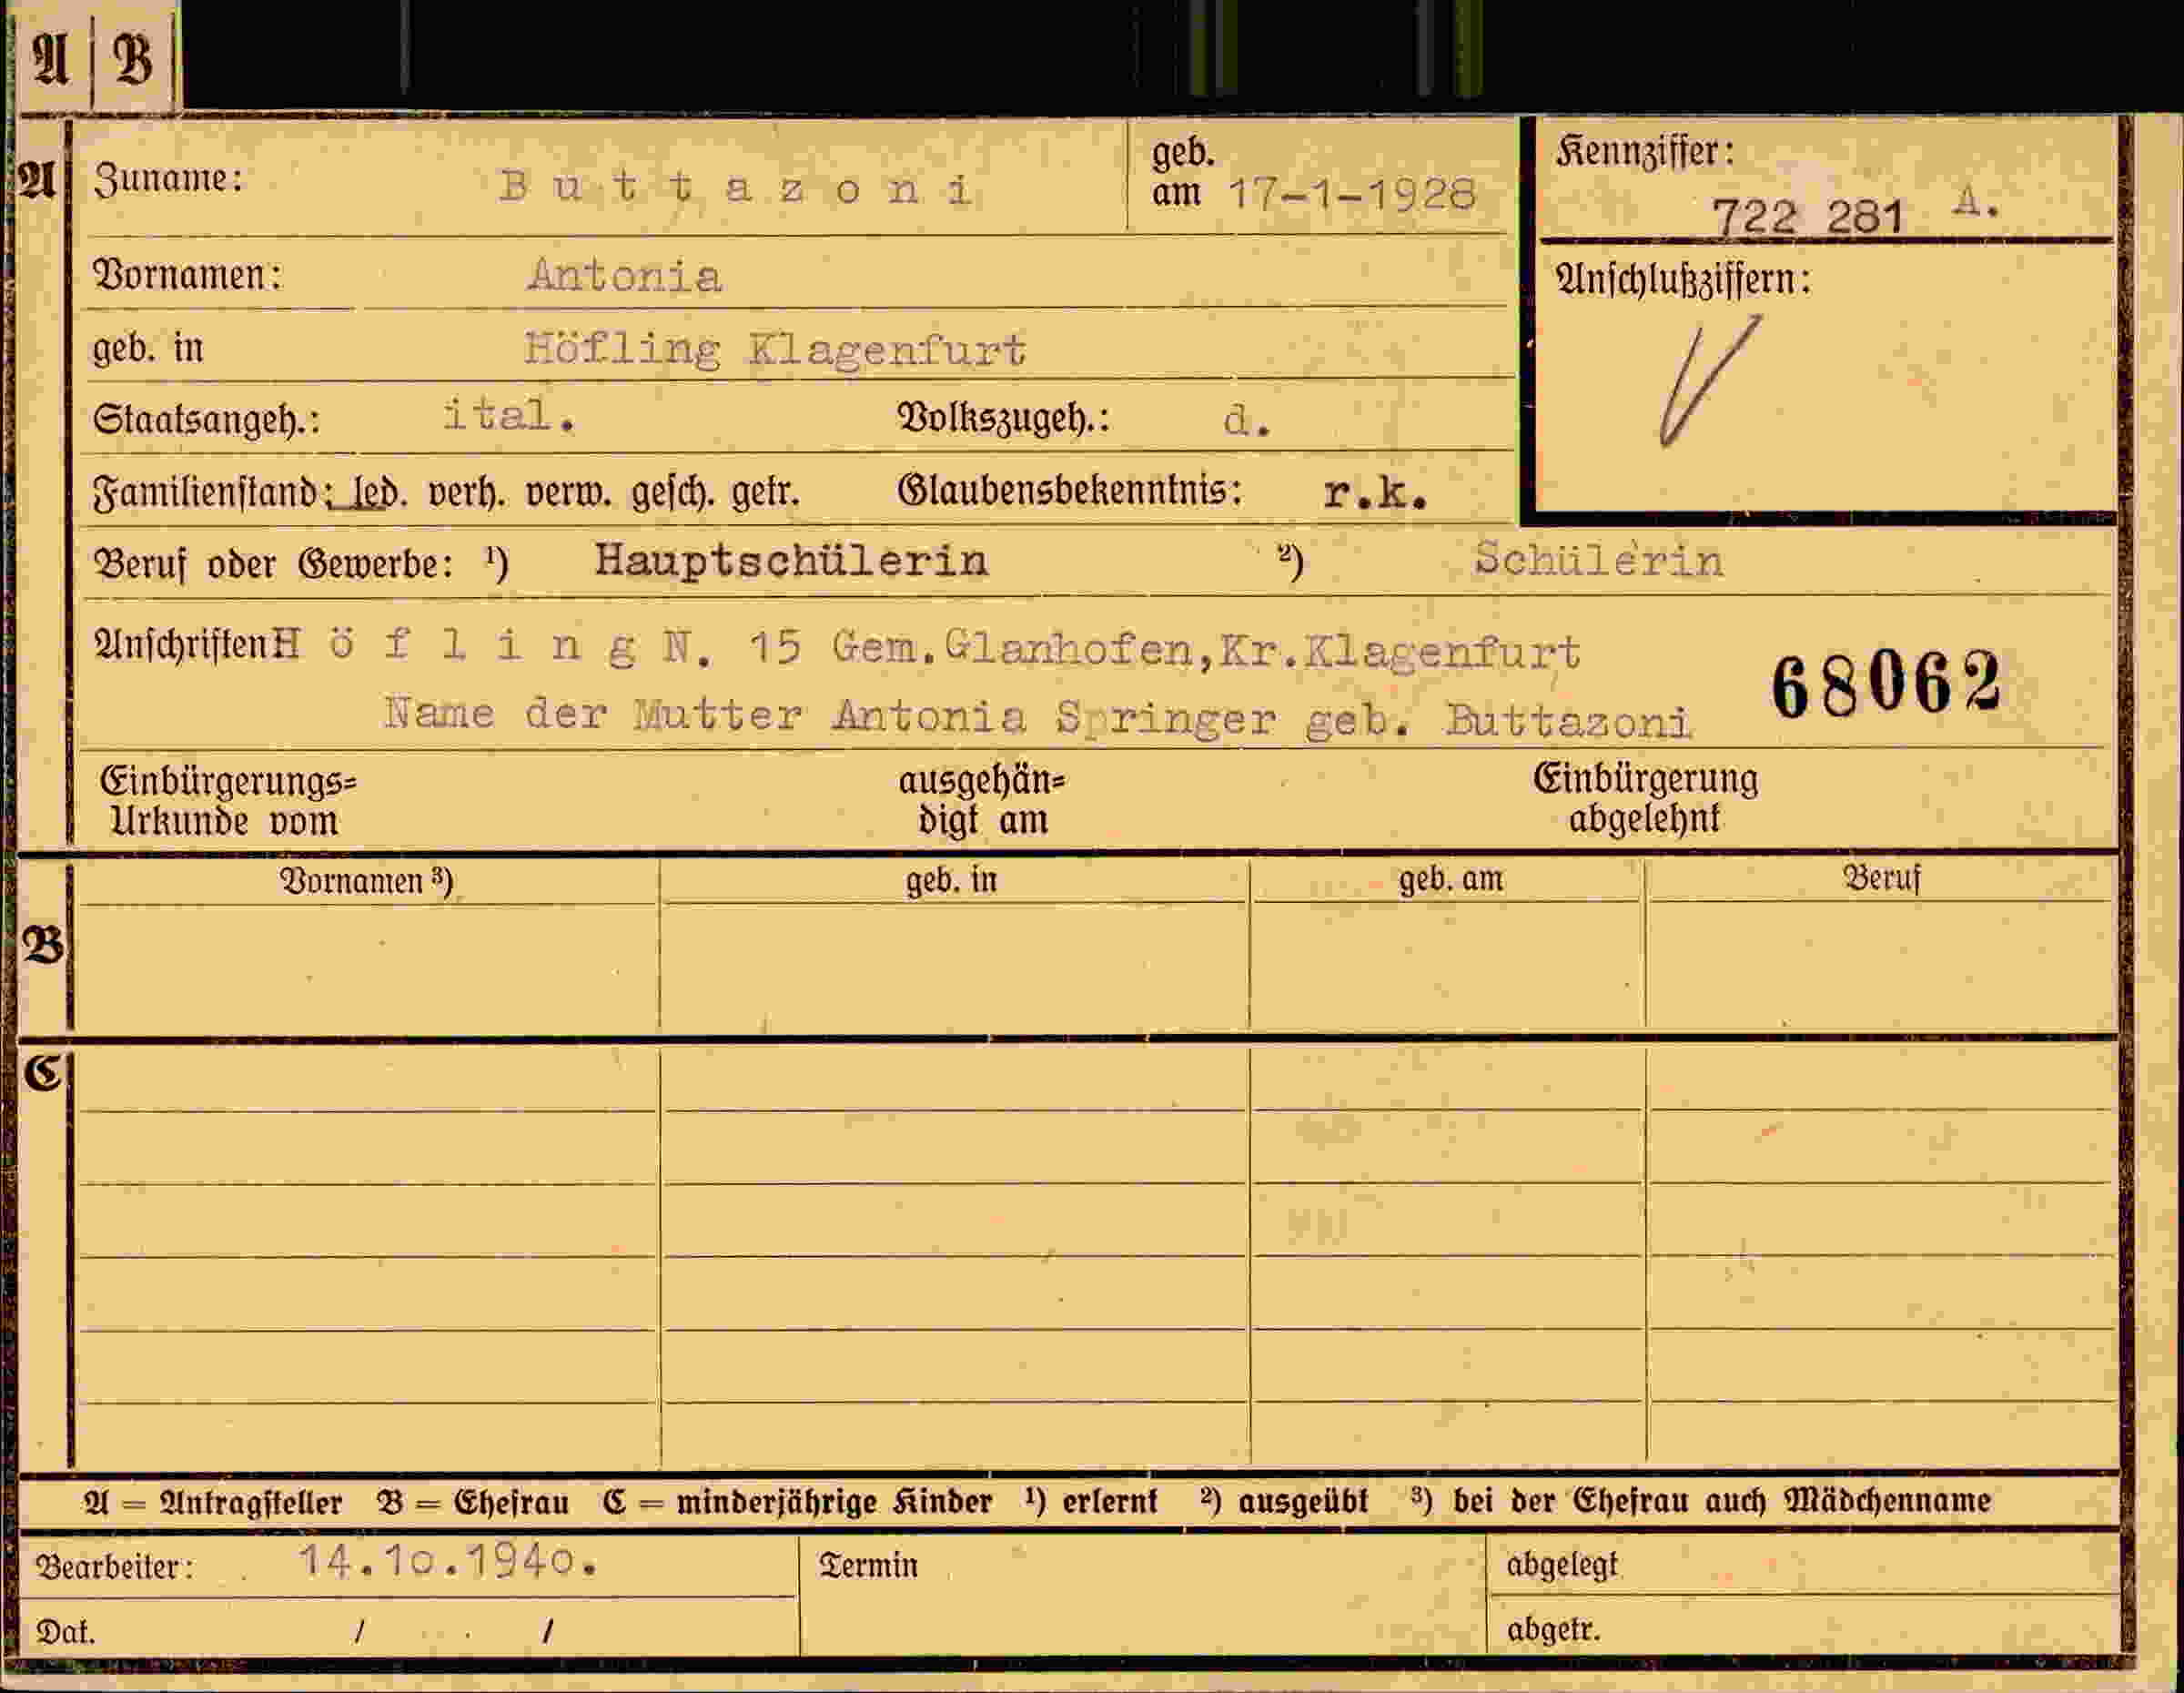 A | B
A Zuname: Buttazoni geb. am 17-1-1928 Kennziffer: 722 281 A.
Vornamen: Antonia Anschlußziffern:
geb. in Höfling Klagenfurt
Staatsangeh.: ital. Volkszugeh.: d.
Familienstand: led. verh. verw. gesch. getr. Glaubensbekenntnis: r.k.
Beruf oder Gewerbe: ¹) Hauptschülerin ²) Schülerin
Anschriften Höfling N. 15 Gem.Glanhofen,Kr.Klagenfurt
68062
Name der Mutter Antonia Springer geb. Buttazoni
Einbürgerungs= ausgehän= Einbürgerung
Urkunde vom digt am abgelehnt
Vornamen ³) geb. in geb. am Beruf
B
C
A = Antragsteller B = Ehefrau C = minderjährige Kinder ¹) erlernt ²) ausgeübt ³) bei der Ehefrau auch Mädchenname
Bearbeiter: 14.10.1940. Termin abgelegt
Dat. / / abgetr.